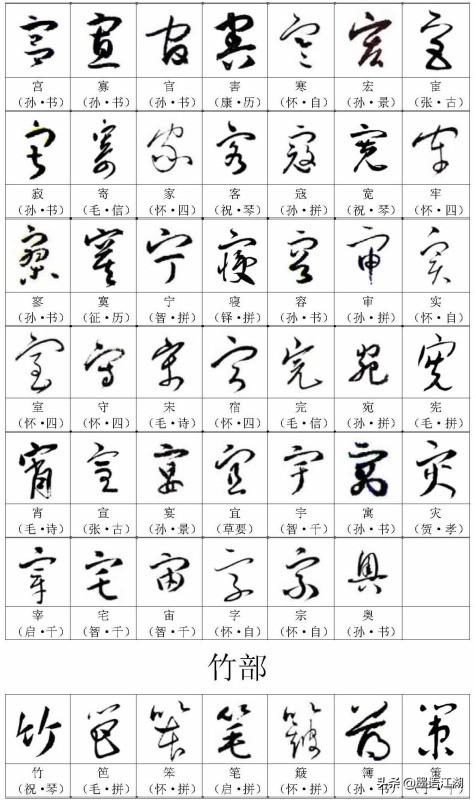 宫 寡 官 害 寒 宏 宦
（孙·书） （孙·书） （孙·书） （康·历） （怀·自） （孙·景） （张·古）
寂 寄 家 客 寇 宽 牢
（孙·书） （毛·信） （怀·四） （祝·琴） （孙·拼） （祝·琴） （怀·四）
寥 寞 宁 寝 容 审 实
（孙·书） （征·历） （智·拼） （铎·拼） （孙·书） （孙·拼） （怀·自）
室 守 宋 宿 完 宛 宪
（怀·四） （怀·四） （毛·诗） （怀·四） （毛·信） （孙·拼） （毛·拼）
宵 宣 宴 宜 宇 寓 灾
（毛·诗） （张·古） （孙·景） （草要） （智·千） （孙·书） （贺·孝）
宰 宅 宙 字 宗 奥
（启·千） （智·千） （智·千） （怀·自） （怀·自） （孙·书）
竹部
竹 笆 笨 笔 簸 簿
（祝·琴） （毛·拼） （怀·拼） （启·拼） （怀·拼）
头条@墨语江湖